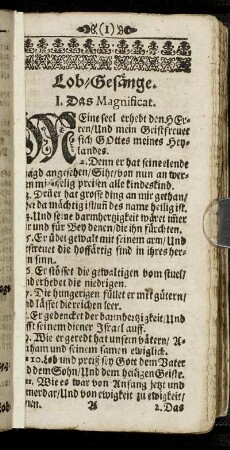 (1)
Lob-Gesänge.
I. Das Magnificat.
MEine seel erhebt den HEr-
ren/Und mein Geist freuet
sich GOttes meines Hey-
landes.
2. Denn er hat seine elende
magd angesehen/Sihe/von nun an wer-
preisen alle kindeskind.
3. Deñ er hat grosse ding an mir gethan/
der da mächtig ist/uñ des name heilig ist.
4. Und seine barmhertzigkeit wäret im̃er
und für Bey denen/die ihn fürchten.
5. Er übet gewalt mit seinem arm/Und
zerstreuet die hoffärtig sind in ihres her-
tzen sinn.
6. Er stösset die gewaltigen vom stuel/
und erhebet die niedrigen.
7. Die hungerigen füllet er mit gütern/
und lässet die reichen leer.
8. Er gedencket der barmhertzigkeit/Und
hilfft seinem diener Israel auff.
9. Wie er geredt hat unsern vätern/A-
braham und seinem samen ewiglich.
10. Lob und preiß sey Gott dem Vater
und dem Sohn/Und dem heiligen Geiste.
11. Wie es war von Anfang jetzt und
immerdar/Und von ewigkeit zu ewigkeit/
Amen. A 2. Das